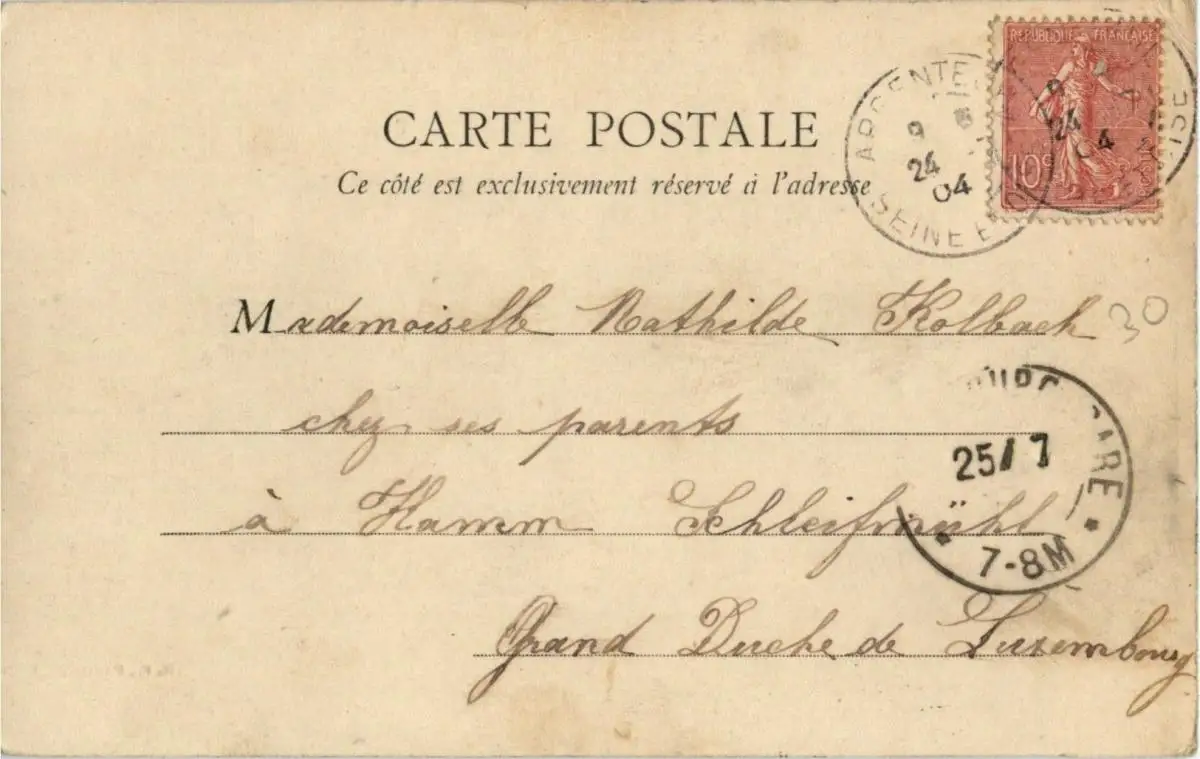 REPUBLIQUE FRANÇAISE
10c
ARGENTE
SEINE E
9
24
04
OISE
9
24
04
CARTE POSTALE
Ce côté est exclusivement réservé à l'adresse
Mademoiselle Mathilde Kolbach 30
chez ses parents
GARE
25/7
7-8M
à Hamm Schleifmühl
Grand Duché de Luxembourg